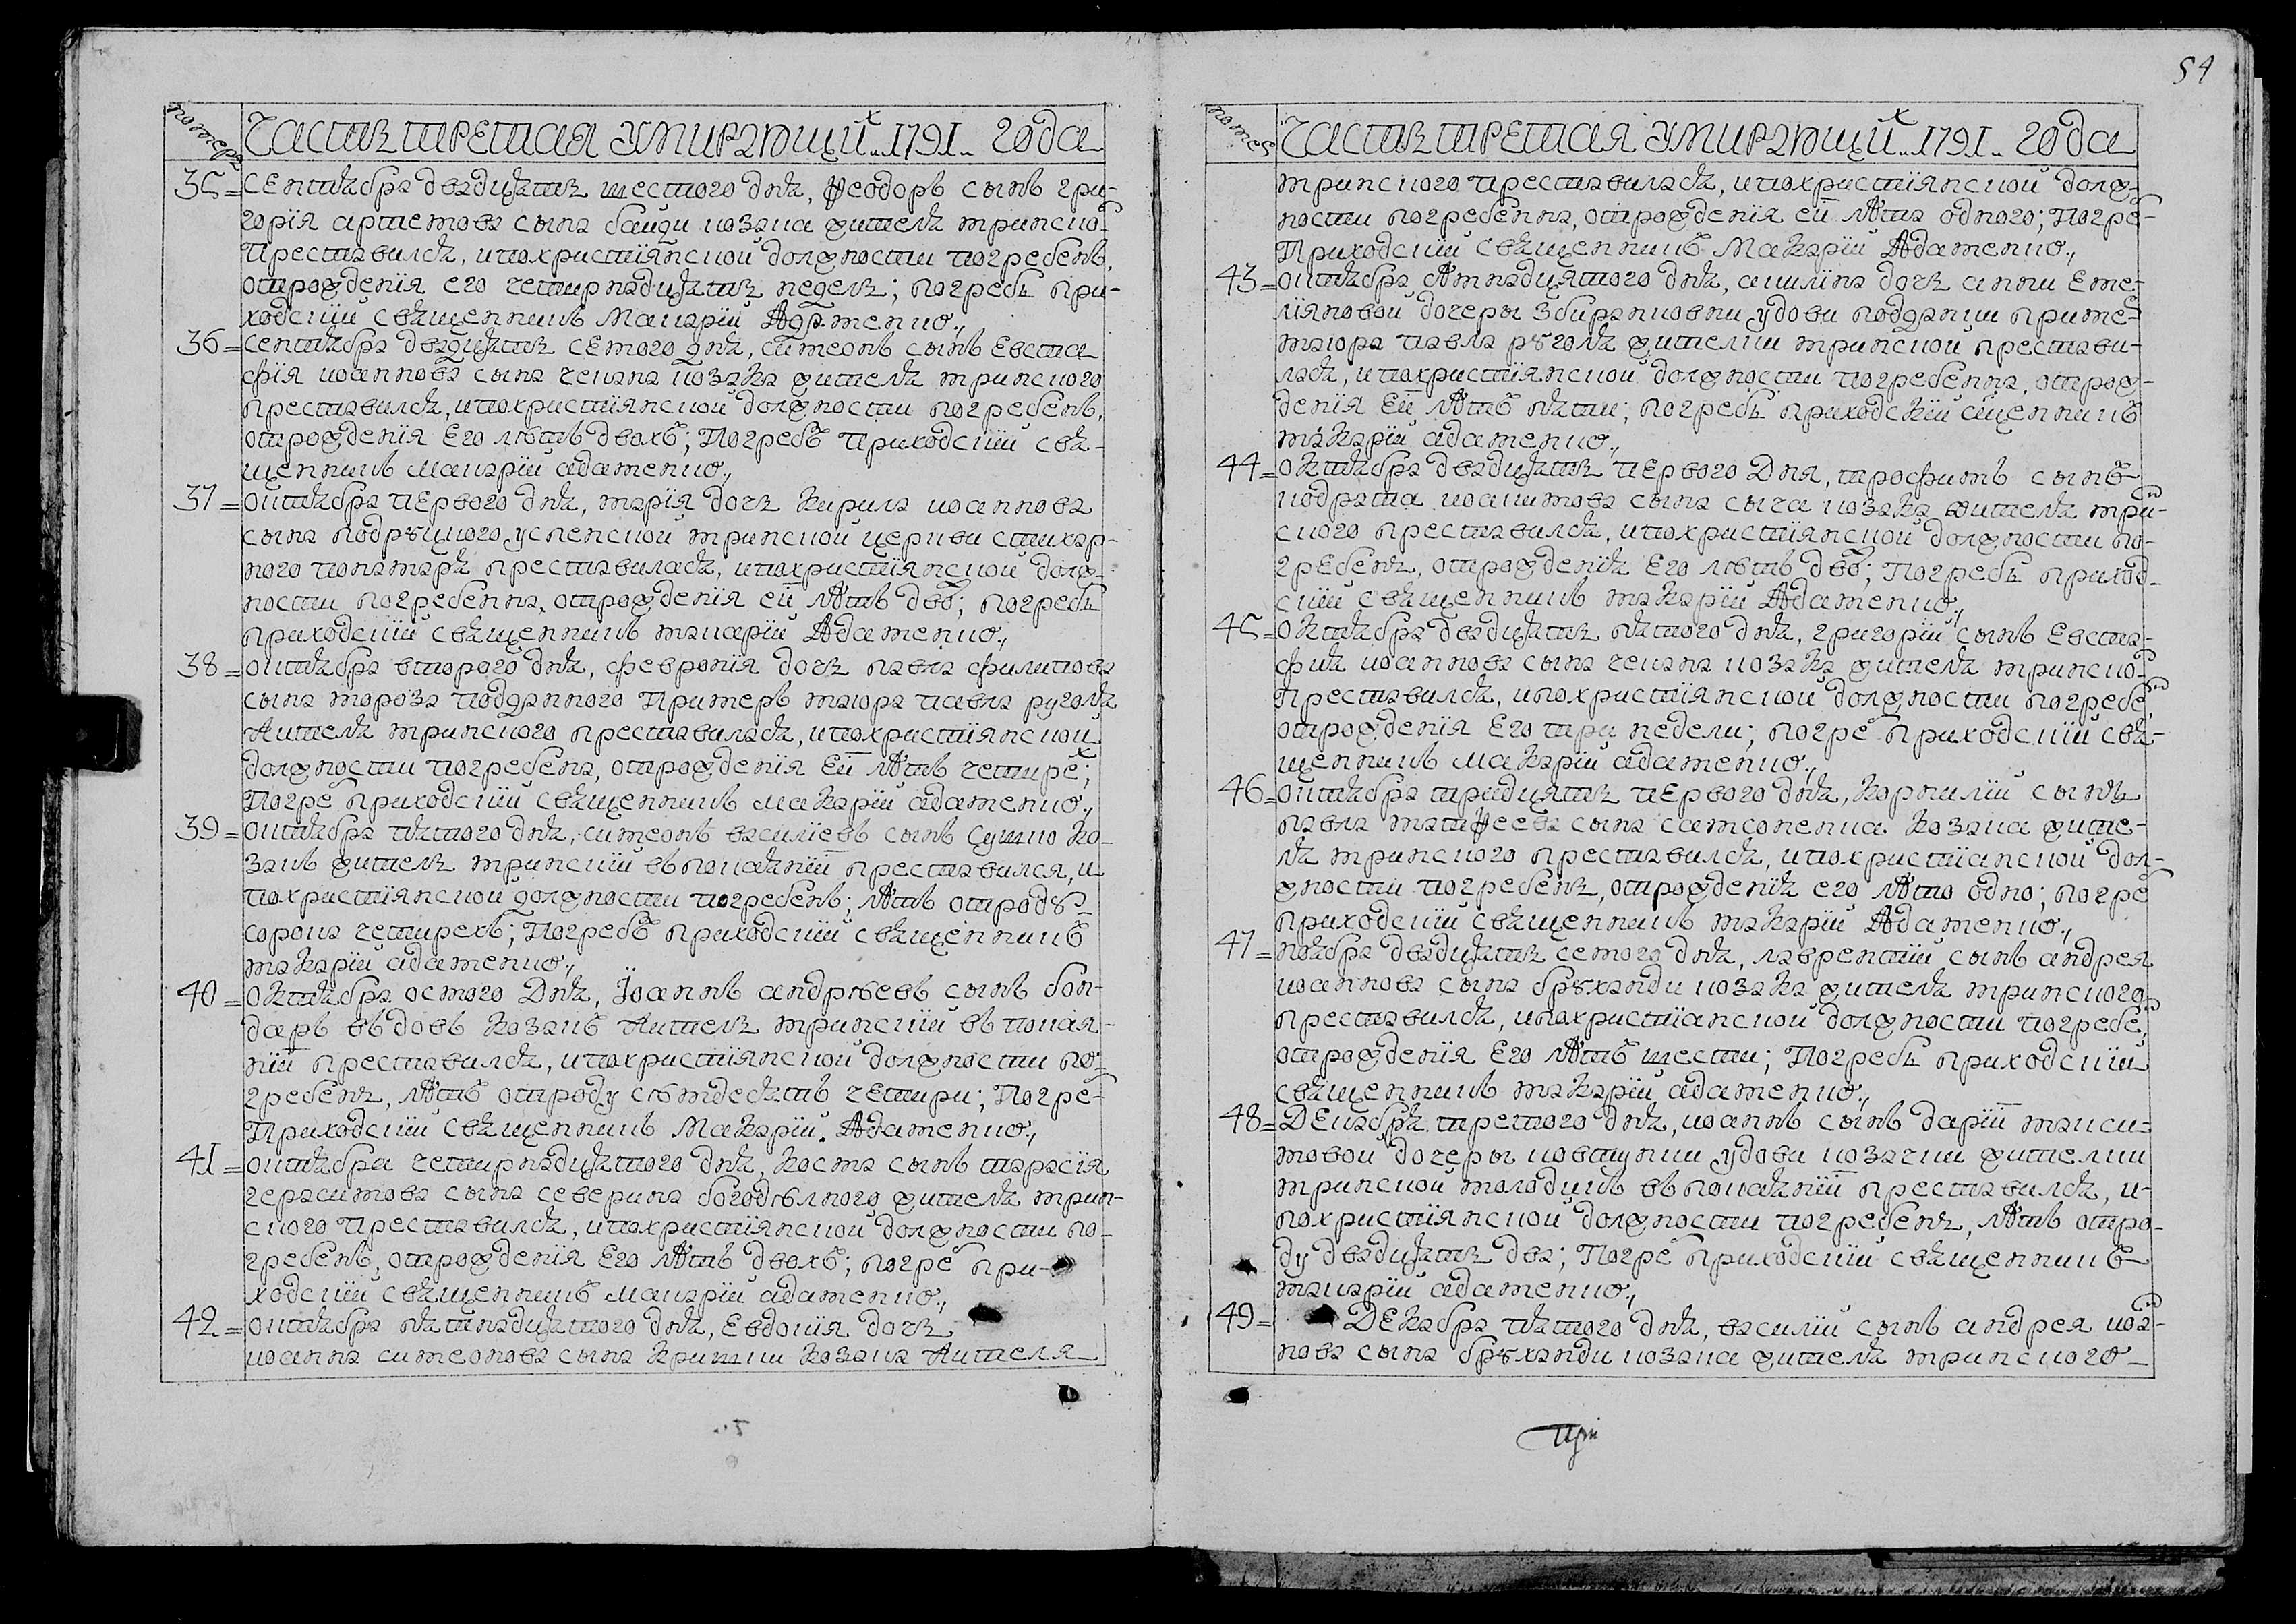 номеръ
Часть третая умирающих 1791 года
35 = Септября двадцять шестого дня, Ѳеодоръ сынъ гри-
горія артемова сына козака жителя
Преставился, и по христіянской должности погребенъ,
от рожденія его четирнадцять недель; погребъ при-
ходскій священникъ Макарій Адаменко.,
36 = септября двадцять семого дня, симеонъ сынъ Евста-
фія иоаннова сына чепана козака жителя
преставился, и по христіянской должности погребенъ,
от рожденія Его лѣтъ двохъ; Погребъ приходскій свя-
щенникъ макарій адаменко.,
37 = октября первого дня, марія дочь Кирила иоаннова
сына успенской церкви стихар-
ного понамаря преставилася, и по христіянской долж-
ности погребенна, от рожденія ей лѣтъ дво; погребъ
приходскій священникъ макарій Адаменко.,
38 = октября второго дня, февронія дочь павла филипова
сына мороза подданного Примеръ маіора павла руголя
жителя преставилася, и по христіянской
должности погребена, от рожденія Ей лѣтъ четирех;
Погре приходскій священникъ макарій адаменко.,
39 = октября пятого дня, симеонъ василіевъ сынъ Сушко ко-
закъ житель в покаяніи преставился, и
по христіянской должности погребенъ; лѣтъ от роду
сорока четирехъ; Погребъ приходскій священникъ
макарій адаменко.,
40 = Октября осмого Дня, Іоаннъ андрѣевъ сынъ бон-
даръ вдовъ козакъ житель в покая-
ніи преставился, и по христіянской должности по-
гребенъ, лѣтъ от роду сѣмдесятъ четири; Погре
Приходскій священникъ Макарій Адаменко.,
41 = октября четирнадцятого дня, косма сынъ тарасія
герасимова сына северина богодѣлного жителя
преставился, и по христіянской должности по-
гребенъ, от рожденія Его лѣтъ двохъ; погре при-
ходскій священникъ макарій адаменко.,
42 = октября пятнадцятого дня, Евдокія дочь
иоанна симеонова сына кришки козака жителя
54
номер
Часть третая умирающих 1791 года
преставилася, и по христіянской долж-
ности погребенна, от рожденія ей лѣта одного; Погре
Приходскій священникъ Макарій Адаменко.,
43 = октября пятнадцятого дня, акилина дочь анни Еме-
ліяновой дочеры удови подданки приме
маіора павла руголя жителки престави-
лася, и по христіянской должности погребенна, от рож-
денія Ей лѣтъ пяти; погребъ приходскій сщенникъ
макарій адаменко.,
44 = Октября двадцять первого Дня, трофимъ сынъ
кодрата иоакимова сына сыча козака жителя
преставился, и по христіянской должности по-
гребенъ, от рожденія Его лѣтъ дво; Погребъ приход-
скій священникъ макарій Адаменко.,
45 = Октября двадцять пятого дня, григорій сынъ Евста-
фия иоаннова сына чепана козака жителя
преставился, и по христіянской должности погребен,
от рожденія Его три недели; погре приходскій свя-
щенникъ макарій адаменко.,
46 = октября тридцять первого дня, корнилій сынъ
павла матѳеева сына самсоненка козака жите-
ля преставился, и по христіанской дол-
жности погребенъ, от рожденія его лѣто одно; погре
приходскій священникъ макарій Адаменко.,
47 = ноября двадцять семого дня, лаврентій сынъ андрея
иоаннова сына бруханди козака жителя
преставился, и по христіанской должности погребен,
от рожденія Его лѣтъ шести; Погребъ приходскій
священникъ макарій адаменко.,
48 = Декабря третого дня, иоаннъ сынъ даріи макси-
мовой дочеры ковтунки удови козачки жителки
молодикъ в покаяніи преставился, и
по христіянской должности погребенъ, лѣтъ от ро-
ду двадцять два; Погре приходскій священникъ
макарій адаменко.,
49 = Декабря пятого дня, василій сынъ андрея иоа-
нова сына бруханди козака жителя
при